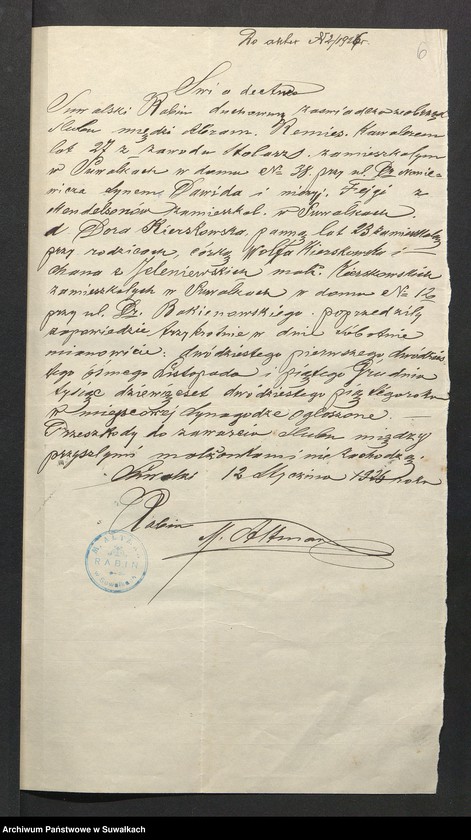 Do aktu № 2/1926 r.
6
Swiadectwo
Suwalski Rabin duchowny zaświadcza że obrzęd
Slubu między Abram. Remies. kawalerem
lat 27 z zawodu Stolarz. zamieszkałym
w Suwałkach w domu № 38 przy ul.
synem Dawida i
Mendelsonów zamieszkał. w Suwałkach.
a Dora Kierszkowska, panną lat 23 zamieszkałą
przy rodzicach, córką Wolfa Kierszkowska i
Chana z Jeleniewskich małż. Kierszkowskich
zamieszkałych w Suwałkach w domu № 12
przy ul. Bakienowskiego. poprzedziły
zapowiedzie trzykrotnie w dni robotnie
mianowicie: dwódziestego pierwszego dwódzies-
tego ósmego Listopada i piątego Grudnia
tysiąc dziewięset dwódziestego piątego roku
w miejscowej synagodze ogłoszone. —
Przeszkody do zawarcia slubu między
przyszłymi małżonkami nie zachodzą.
Suwałki 12 Stycznia 1926 roku
Rabin
M. Altman
RABIN
Archiwum Państwowe w Suwałkach